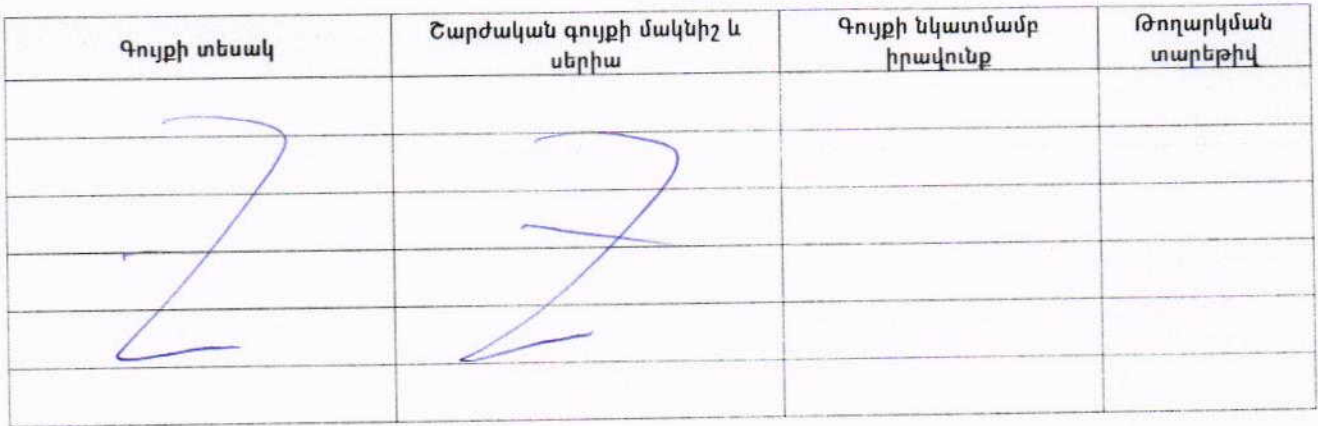 Գույքի տեսակ
Շարժական գույքի մակնիշ և
սերիա
Գույքի նկատմամբ
իրավունք
Թողարկման
տարեթիվ